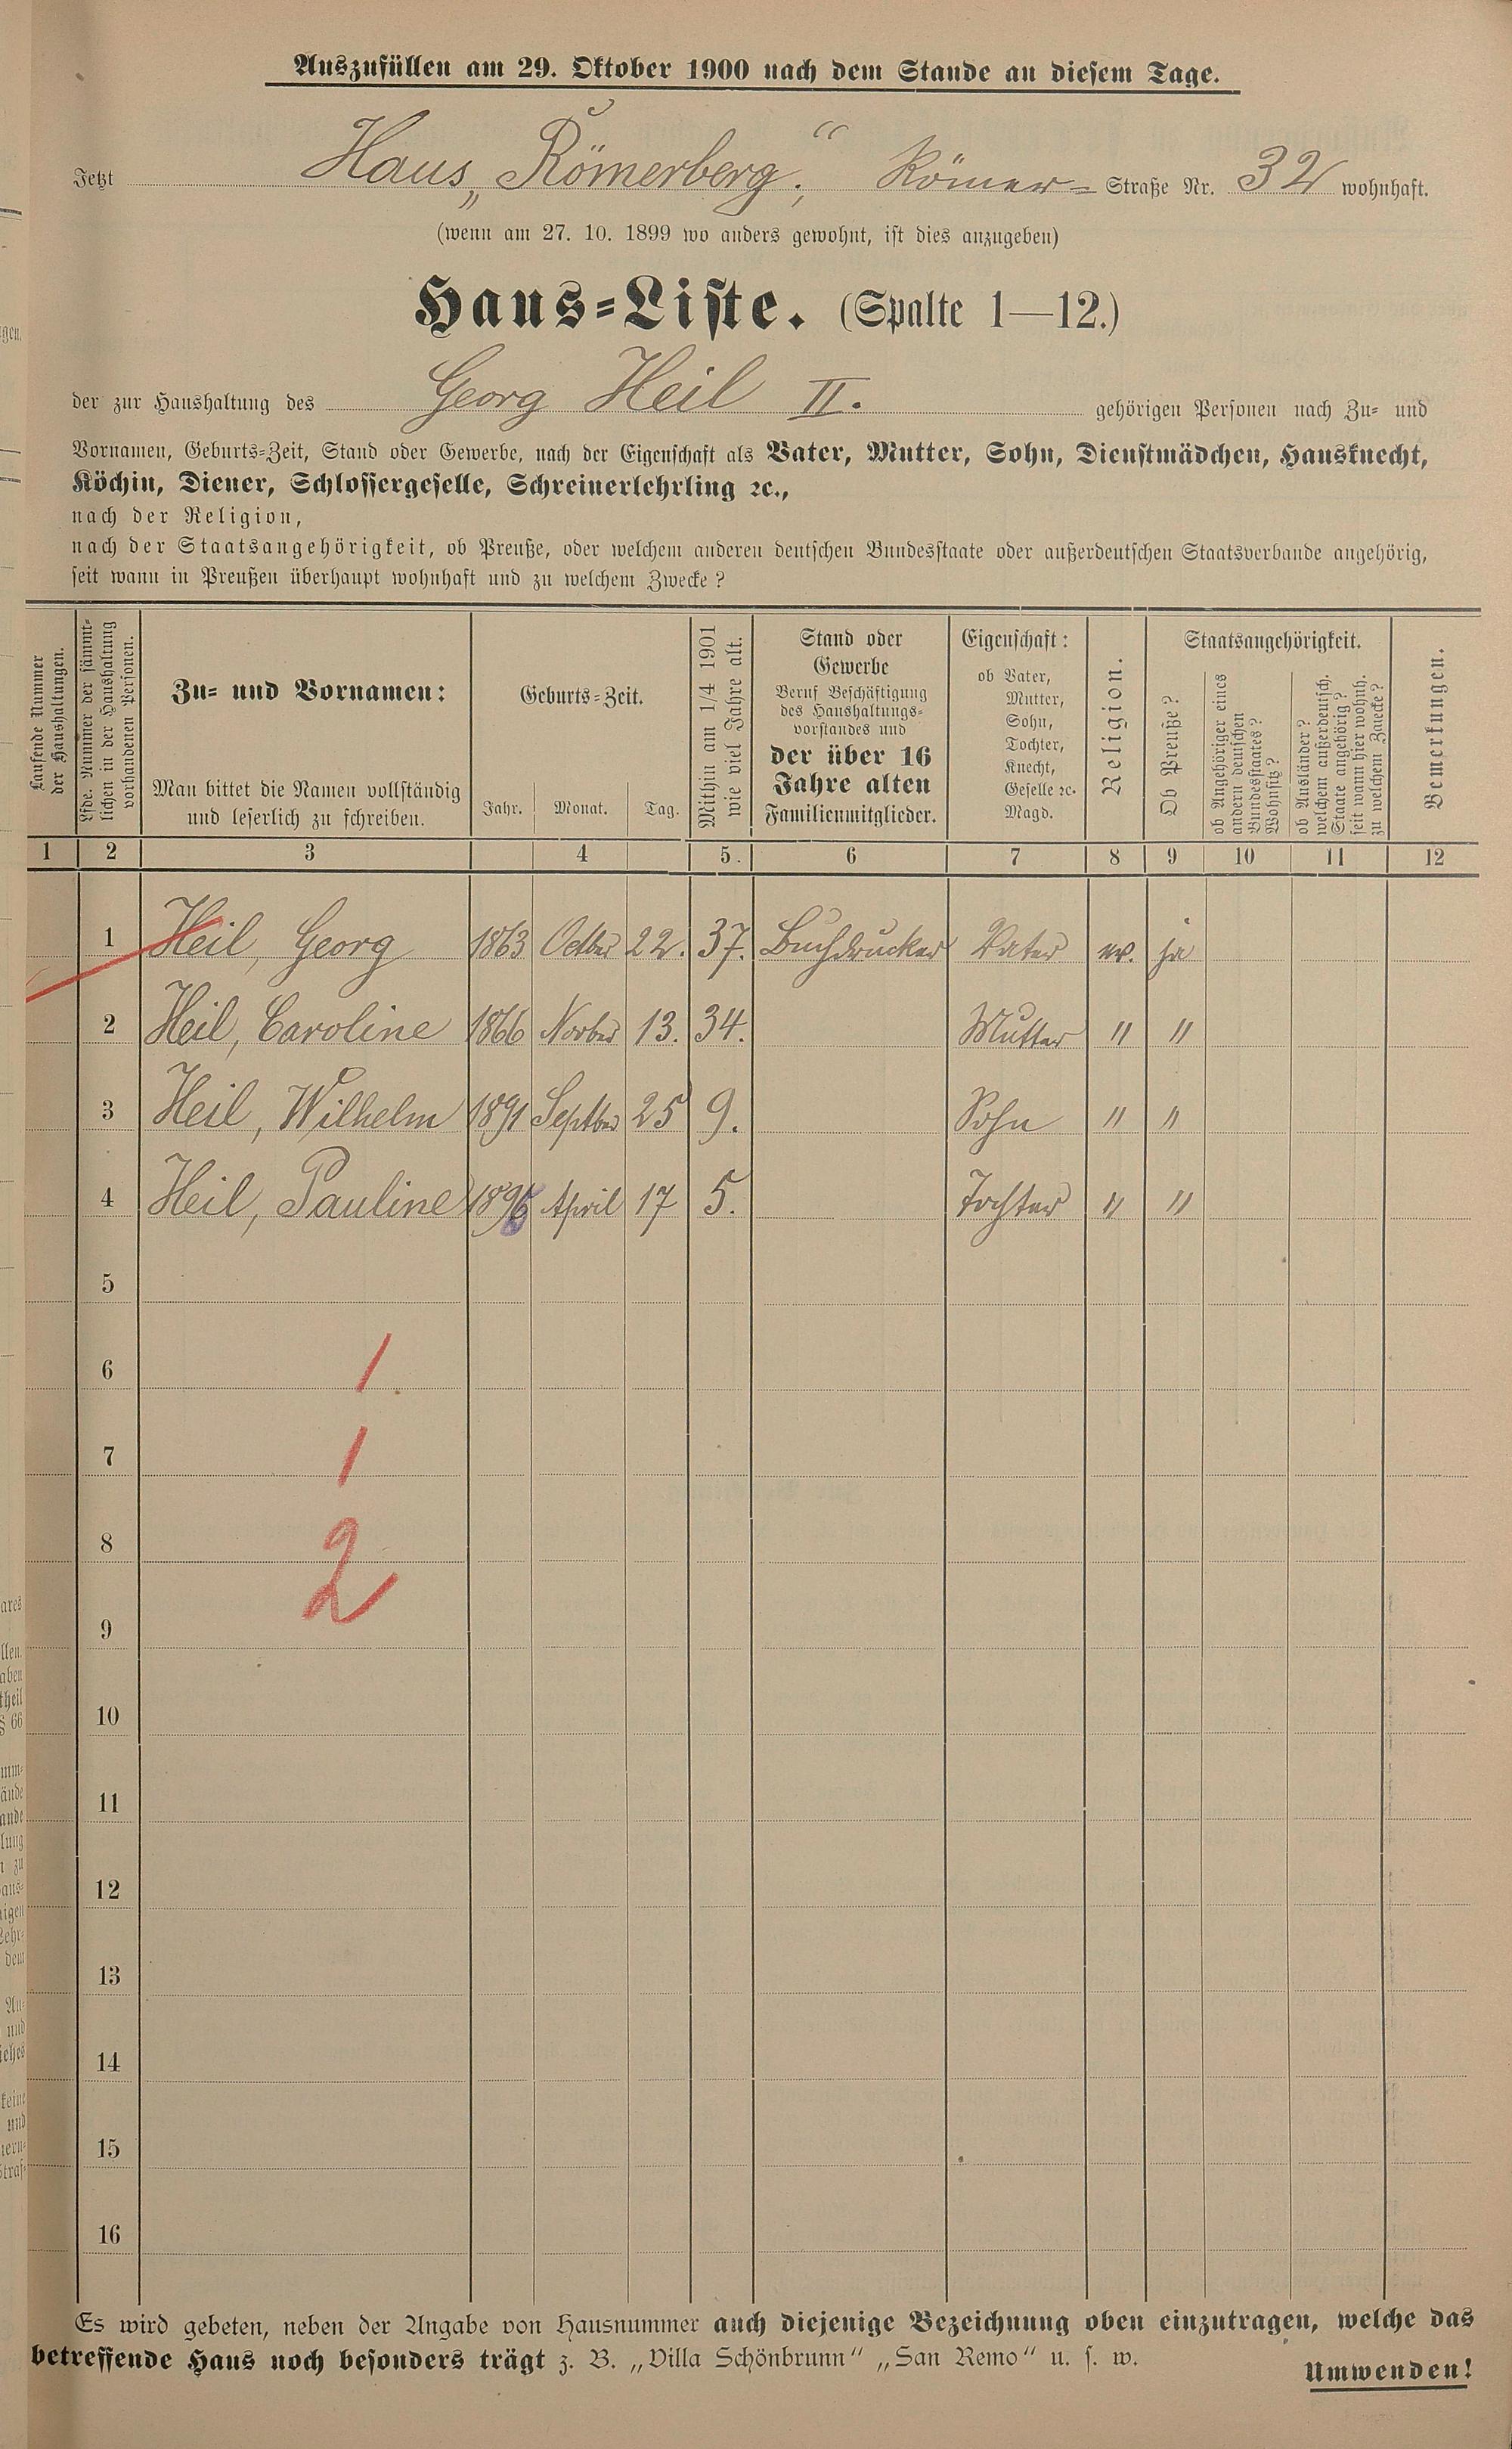 Auszufüllen am 29. Oktober 1900 nach dem Stande an diesem Tage.
Jetzt Haus „Römerberg“, Römer- Straße Nr. 32 wohnhaft.
(wenn am 27. 10. 1899 wo anders gewohnt, ist dies anzugeben)
Haus-Liste. (Spalte 1—12.)
der zur Haushaltung des Georg Heil II. gehörigen Personen nach Zu- und
Vornamen, Geburts-Zeit, Stand oder Gewerbe, nach der Eigenschaft als Vater, Mutter, Sohn, Dienstmädchen, Hausknecht,
Köchin, Diener, Schlossergeselle, Schreinerlehrling ꝛc.,
nach der Religion,
nach der Staatsangehörigkeit, ob Preuße, oder welchem anderen deutschen Bundesstaate oder außerdeutschen Staatsverbande angehörig,
seit wann in Preußen überhaupt wohnhaft und zu welchem Zwecke?
Laufende Nummer
der Haushaltungen.
Lfde. Nummer der sämmt-
lichen in der Haushaltung
vorhandenen Personen.
Zu- und Vornamen:
Man bittet die Namen vollständig
und leserlich zu schreiben.
Geburts-Zeit.
Jahr. Monat. Tag.
Mithin am 1/4 1901
wie viel Jahre alt.
Stand oder
Gewerbe
Beruf Beschäftigung
des Haushaltungs-
vorstandes und
der über 16
Jahre alten
Familienmitglieder.
Eigenschaft:
ob Vater,
Mutter,
Sohn,
Tochter,
Knecht,
Geselle ꝛc.
Magd.
Religion.
Staatsangehörigkeit.
Ob Preuße?
ob Angehöriger eines
andern deutschen
Bundesstaates?
Wohnsitz?
ob Ausländer?
welchem außerdeutsch.
Staate angehörig?
seit wann hier wohnh.
zu welchem Zwecke?
Bemerkungen.
1 2 3 4 5. 6 7 8 9 10 11 12
1 Heil, Georg 1863 Octber 22. 37. Buchdrucker Vater ev. ja
2 Heil, Caroline 1866 Novber 13. 34. Mutter " "
3 Heil, Wilhelm 1891 Septber 25 9. Sohn " "
4 Heil, Pauline 1896 April 17 5. Tochter " "
5
6 1
7 1
8 2
9
10
11
12
13
14
15
16
Es wird gebeten, neben der Angabe von Hausnummer auch diejenige Bezeichnung oben einzutragen, welche das
betreffende Haus noch besonders trägt z. B. „Villa Schönbrunn“ „San Remo“ u. s. w.
Umwenden!